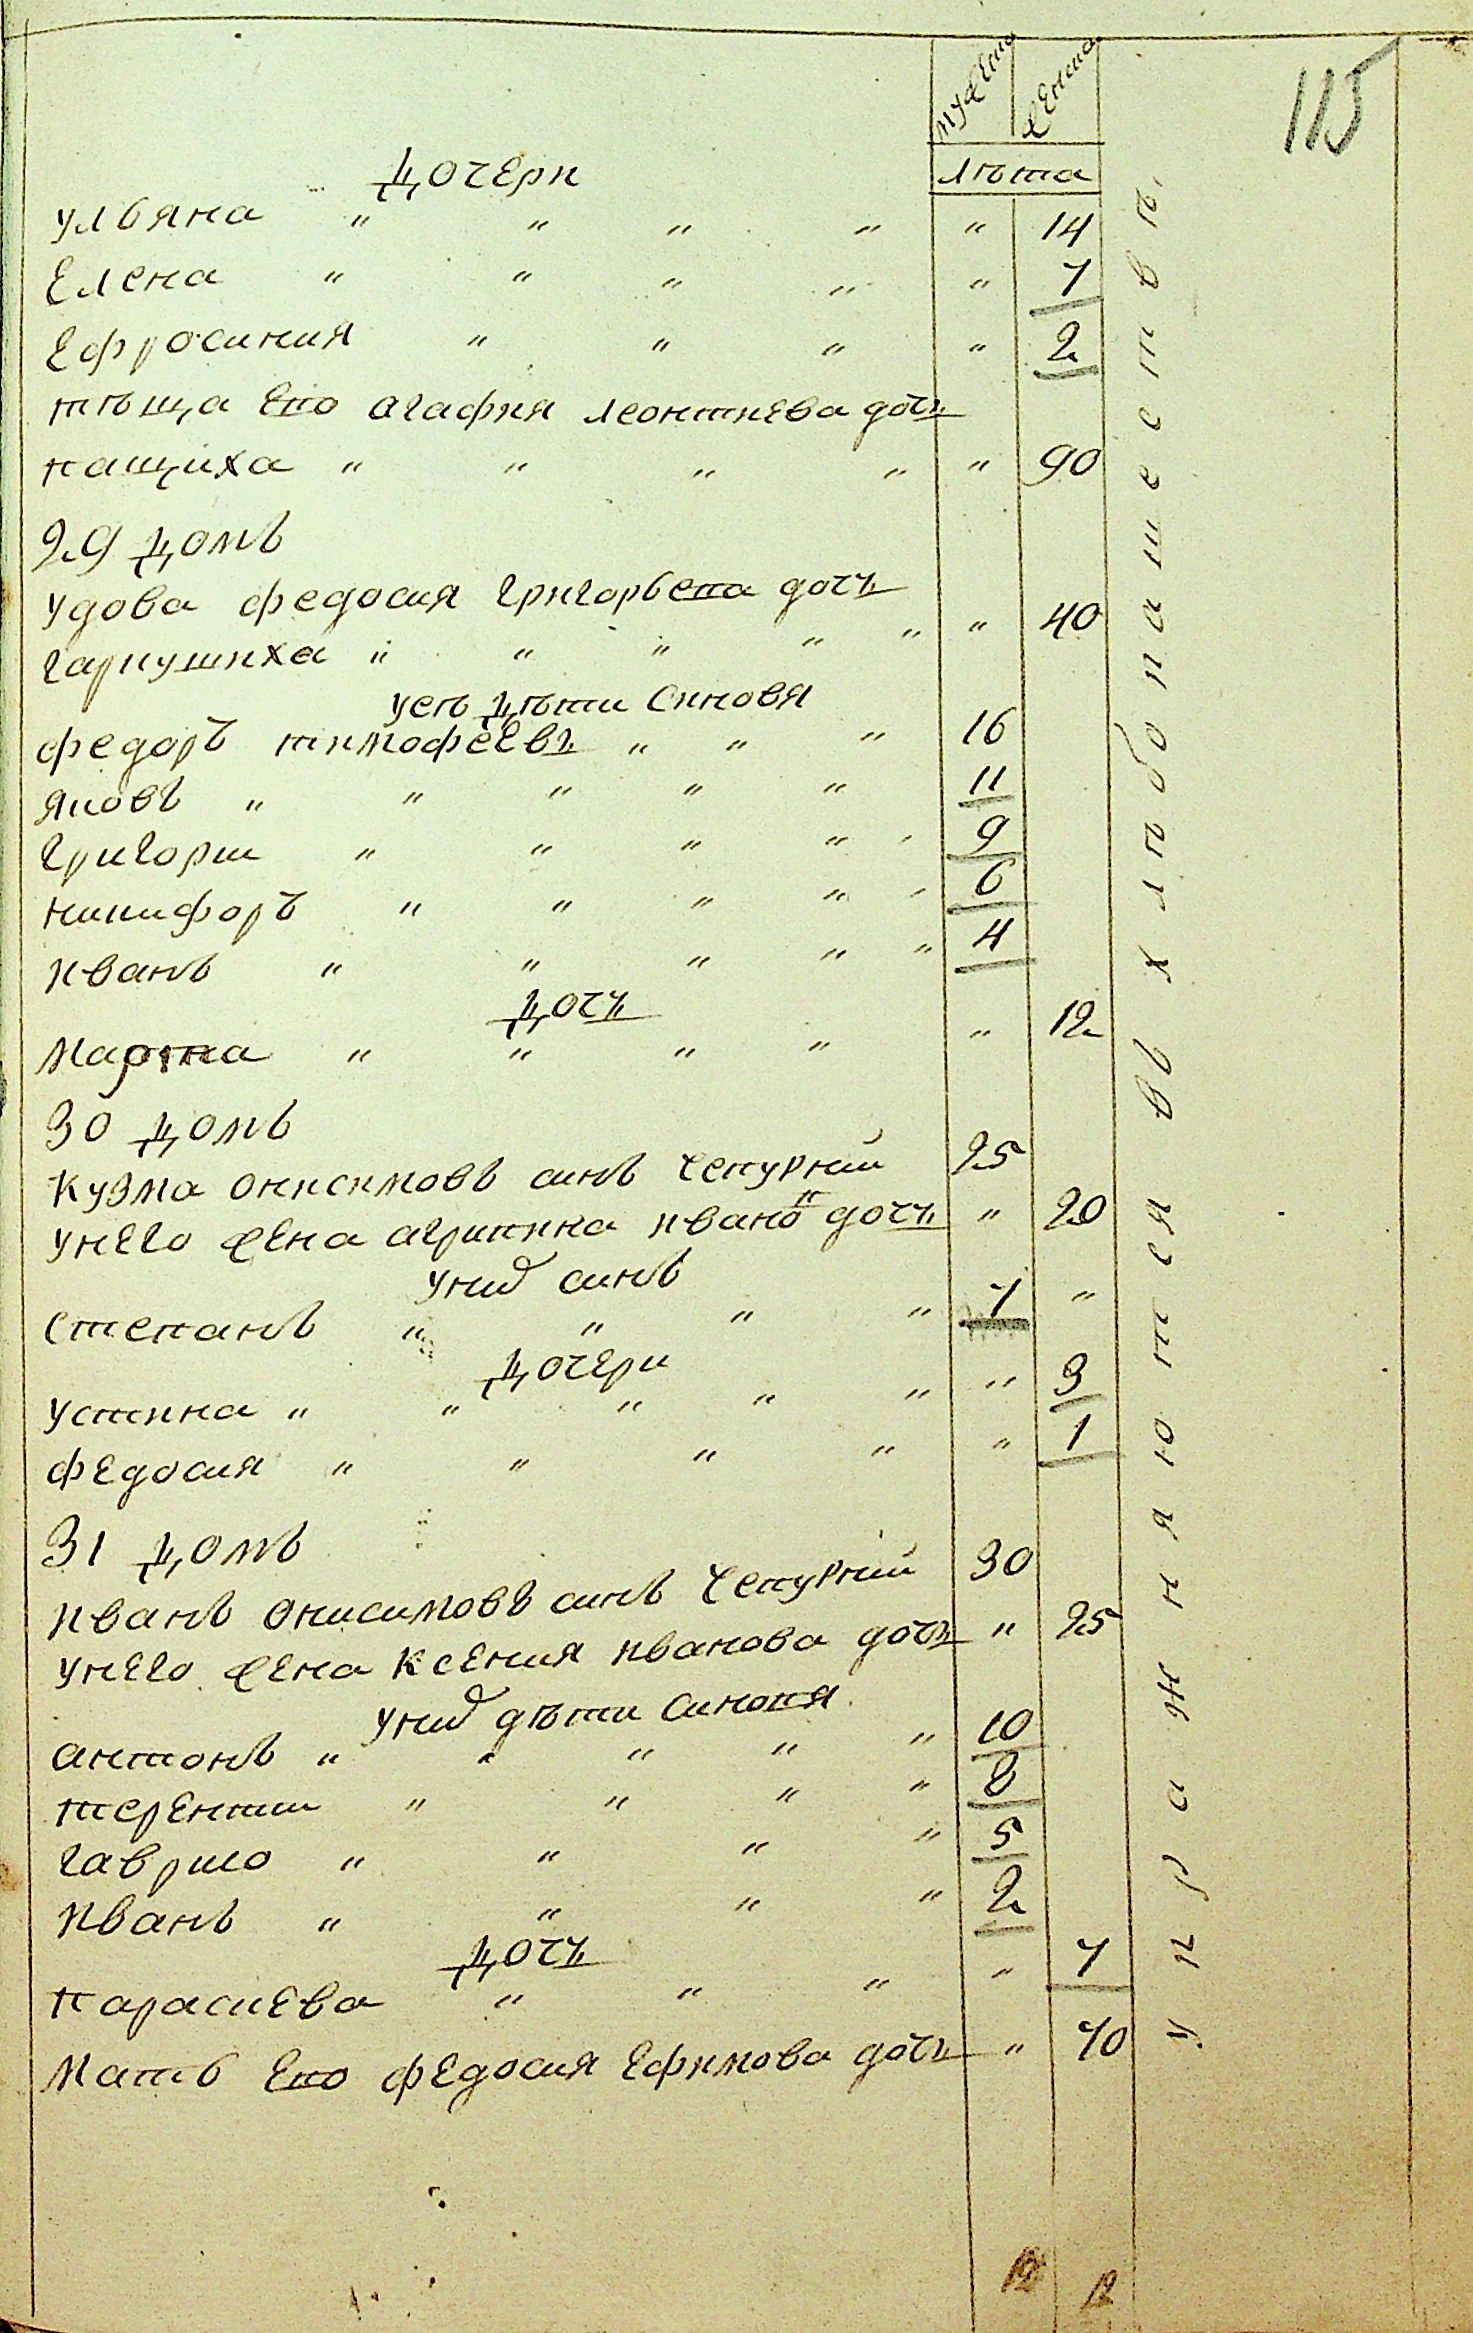 мужеска женска
115
лѣта
Дочери
ульяна " " " " " 14
Елена " " " " " 7
Ефросиния " " " " 2
тѣща Его агафия леонтиева дочъ
пащиха " " " " " 90
29 домъ
удова федосия григорьева дочъ
гарпушиха " " " " " " 40
унеѣ дѣти Синовя
федоръ тимофеевъ " " " 16
яковъ " " " " " 11
григории " " " " 9
никифоръ " " " " 6
иванъ " " " " " 4
дочъ
марфа " " " " " 12
30 домъ
кузма онисимовъ синъ Чепурний 25
унего жена агрипина иванов дочъ " 20
уних синъ
степанъ " " " " 7 "
дочери
устина " " " " " " 3
федосия " " " " " 1
31 домъ
иванъ онисимовъ синъ Чепурний 30
унего жена ксения иванова дочъ " 25
уних дѣти синовя
антонъ " " " " " 10
терентии " " " " 8
гаврило " " " " 5
иванъ " " " " 2
дочъ
парасиева " " " " 7
мать Его федосия Ефимова дочъ " 70
12 12
упражняются въ хлѣбопашествѣ